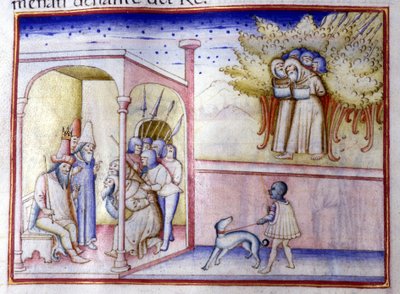 menati denante del Re.